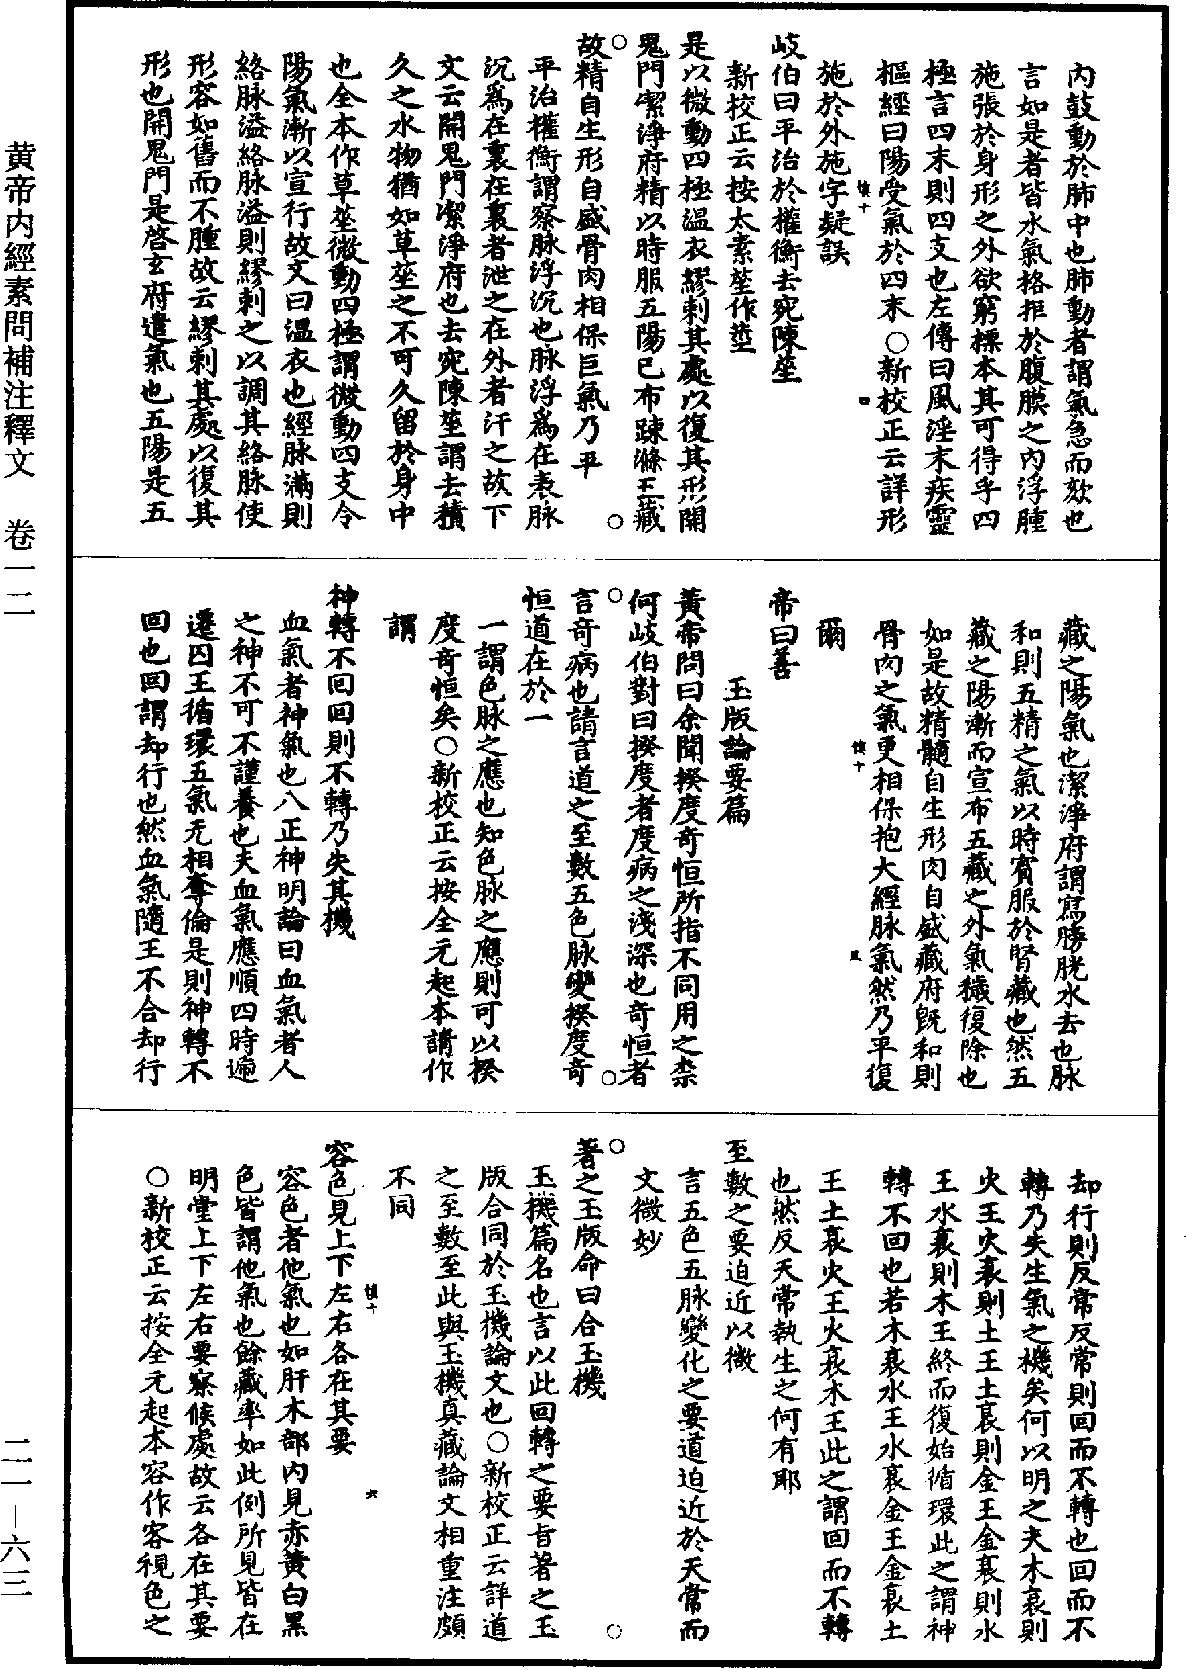 內鼓動於肺中也肺動者謂氣急而欬也
言如是者皆水氣格拒於腹膜之內浮腫
施張於身形之外欲窮標本其可得乎四
極言四末則四支也左傳曰風淫末疾靈
樞經曰陽受氣於四末○新校正云詳形
施於外施字疑誤
慎十 四
岐伯曰平治於權衡去宛陳莝
新校正云按太素莝作莖
是以微動四極溫衣繆刺其處以復其形開
鬼門潔淨府精以時服五陽已布疎滌五藏
故精自生形自盛骨肉相保巨氣乃平
平治權衡謂察脉浮沉也脉浮爲在表脉
沉爲在裏在裏者泄之在外者汗之故下
文云開鬼門潔淨府也去宛陳莝謂去積
久之水物猶如草莝之不可久留於身中
也全本作草莝微動四極謂微動四支令
陽氣漸以宣行故文曰溫衣也經脉滿則
絡脉溢絡脉溢則繆刺之以調其絡脉使
形容如舊而不腫故云繆刺其處以復其
形也開鬼門是啓玄府遣氣也五陽是五
藏之陽氣也潔淨府謂寫膀胱水去也脉
和則五精之氣以時賓服於腎藏也然五
藏之陽漸而宣布五藏之外氣穢復除也
如是故精髓自生形肉自盛藏府既和則
骨肉之氣更相保抱大經脉氣然乃平復
爾
慎十 五
帝曰善
玉版論要篇
黃帝問曰余聞揆度奇恒所指不同用之柰
何岐伯對曰揆度者度病之淺深也奇恒者
言奇病也請言道之至數五色脉變揆度奇
恒道在於一
一謂色脉之應也知色脉之應則可以揆
度奇恒矣○新校正云按全元起本請作
謂
神轉不回回則不轉乃失其機
血氣者神氣也八正神明論曰血氣者人
之神不可不謹養也夫血氣應順四時遞
遷囚王循環五氣无相奪倫是則神轉不
回也回謂却行也然血氣隨王不合却行
却行則反常反常則回而不轉也回而不
轉乃失生氣之機矣何以明之夫木衰則
火王火衰則土王土衰則金王金衰則水
王水衰則木王終而復始循環此之謂神
轉不回也若木衰水王水衰金王金衰土
王土衰火王火衰木王此之謂回而不轉
也然反天常執生之何有耶
至數之要迫近以微
言五色五脉變化之要道迫近於天常而
文微妙
著之玉版命曰合玉機
玉機篇名也言以此回轉之要旨著之玉
版合同於玉機論文也○新校正云詳道
之至數至此與玉機真藏論文相重注頗
不同
慎十 六
容色見上下左右各在其要
容色者他氣也如肝木部內見赤黃白黑
色皆謂他氣也餘藏率如此例所見皆在
明堂上下左右要察候處故云各在其要
○新校正云按全元起本容作客視色之
黃帝內經素問補注釋文 卷一二
二一—六三